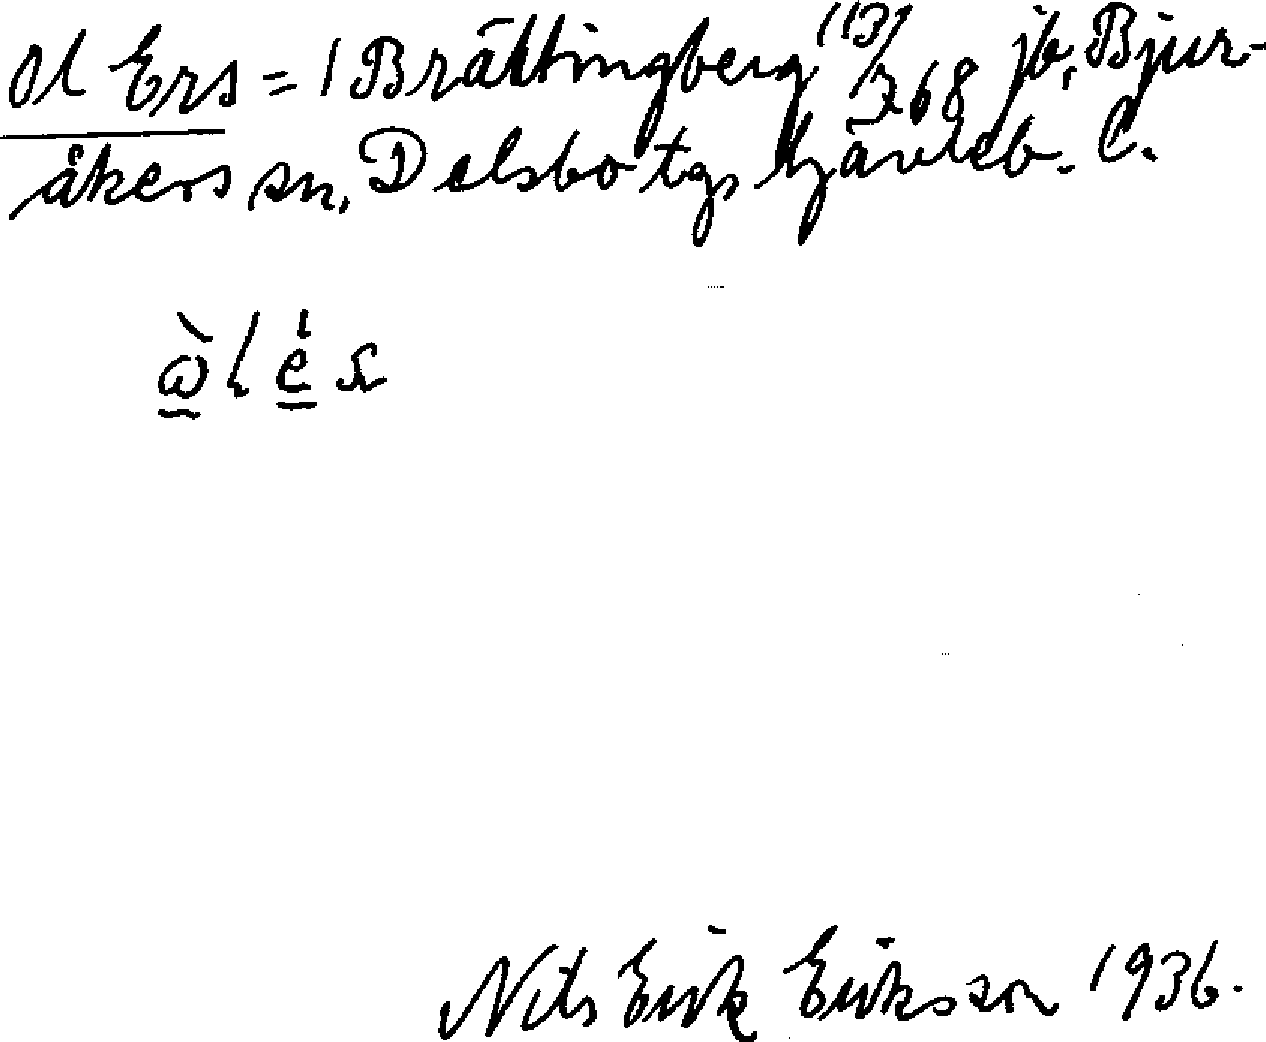 Ol Ers = 1 Brättingberg 113/768 jb, Bjur-
åkers sn, Delsbo tg, Gävleb. l.
Nils Erik Eriksson 1936.